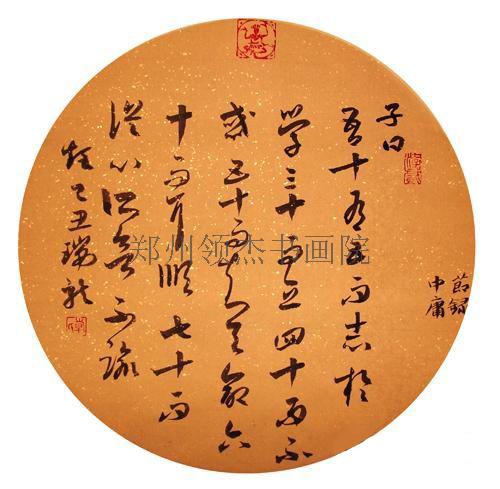 節錄
中庸
子曰
吾十有五而志於
學三十而立四十而不
惑五十而知天命六
十而耳順七十而
從心所欲不踰
矩己丑瑞龍
郑州领杰书画院